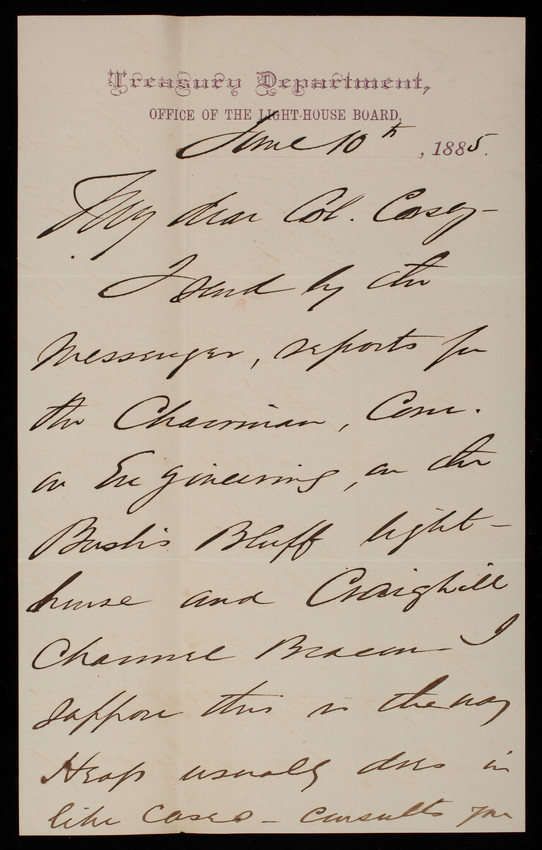 Treasury Department,
OFFICE OF THE LIGHT-HOUSE BOARD,
June 10th, 1885.
My dear Col. Casey-
I send by the
messenger, reports for
the Chairman, Com.
on Engineering, on the
Bluff light-
house and Craighill
Channel Beacon I
suppose this is the way
Heap usually does in
like cases - consults you